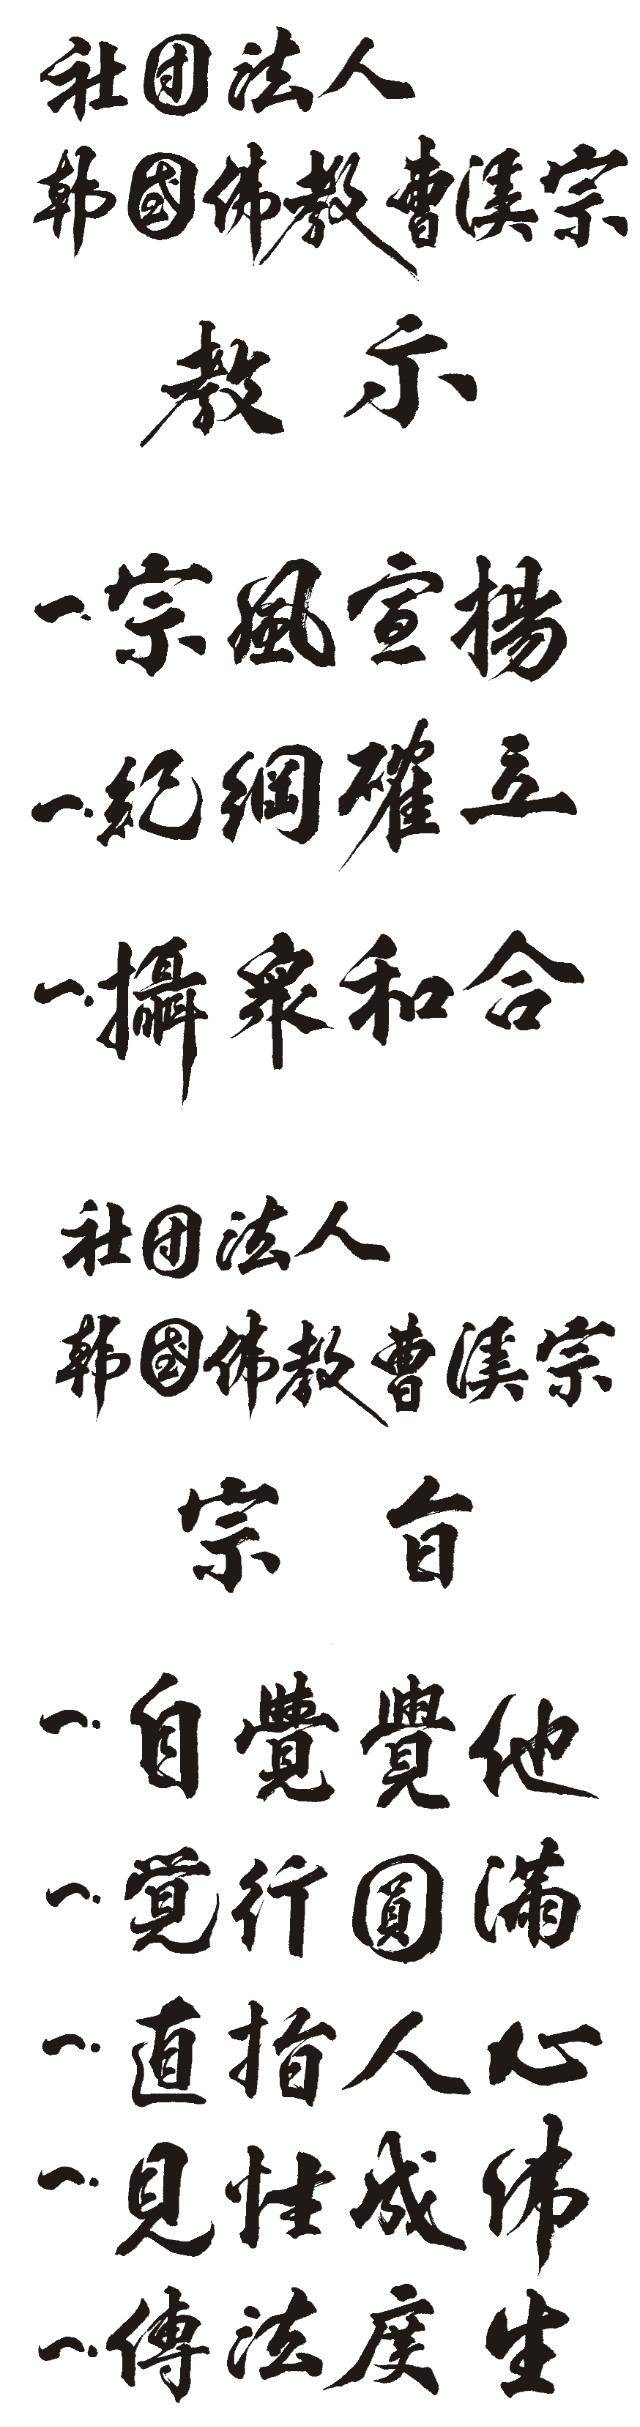 社団法人
韓國佛教曹溪宗
教示
一.宗風宣揚
一.紀綱確立
一.攝衆和合
社団法人
韓國佛教曹溪宗
宗旨
一.自覺覺他
一.覚行圓滿
一.直指人心
一.見性成佛
一.傳法度生